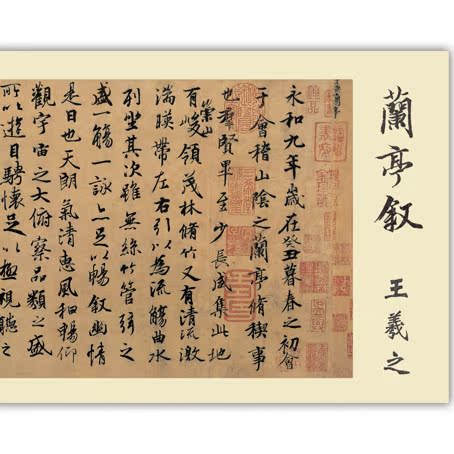 蘭亭叙
王羲之
永和九年歲在癸丑暮春之初會
于會稽山陰之蘭亭脩稧事
也羣賢畢至少長咸集此地
有崇山峻領茂林脩竹又有清流激
湍暎帶左右引以為流觴曲水
列坐其次雖無絲竹管弦之
盛一觴一詠亦足以暢叙幽情
是日也天朗氣清惠風和暢仰
觀宇宙之大俯察品類之盛
所以遊目騁懷足以極視聽之